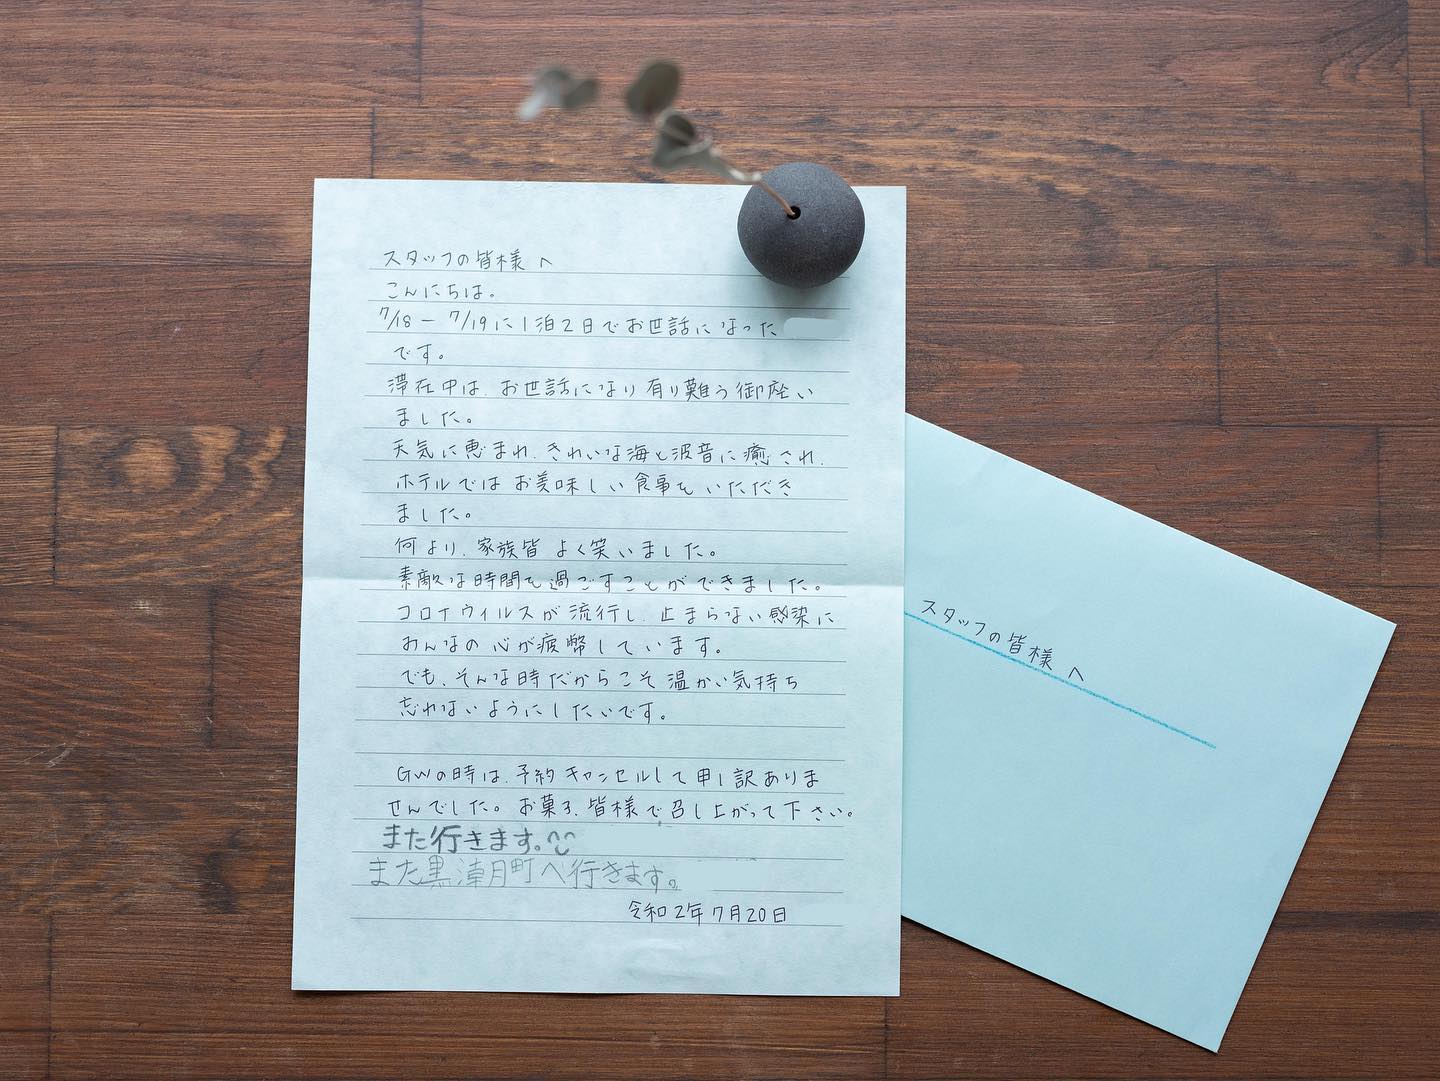 スタッフの皆様へ
こんにちは。
7/18-7/19に1泊2日でお世話になった
です。
滞在中は、お世話になり有り難う御座い
ました。
天気に恵まれ、きれいな海と波音に癒され、
ホテルではお美味しい食事をいただき
ました。
何より、家族皆よく笑いました。
素敵な時間を過ごすことができました。
コロナウィルスが流行し、止まらない感染に
みんなの心が疲弊しています。
でも、そんな時だからこそ温かい気持ち
忘れないようにしたいです。
GWの時は、予約キャンセルして申し訳ありま
せんでした。お菓子、皆様で召し上がって下さい。
また行きます。^^
また黒潮町へ行きます。
令和2年7月20日
スタッフの皆様へ